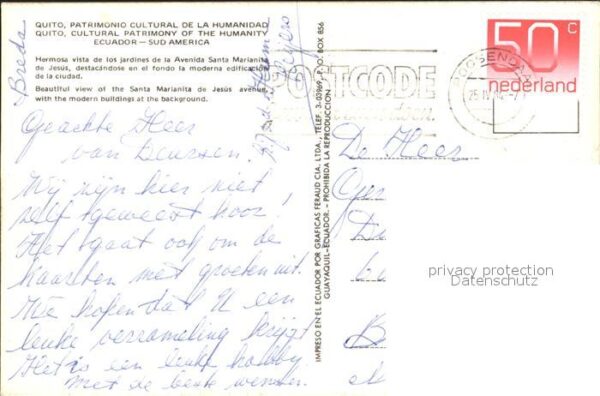 QUITO, PATRIMONIO CULTURAL DE LA HUMANIDAD
QUITO, CULTURAL PATRIMONY OF THE HUMANITY
ECUADOR – SUD AMERICA
Hermosa vista de los jardines de la Avenida Santa Marianita
de Jesús, destacándose en el fondo la moderna edificación
de la ciudad.
Beautiful view of the Santa Marianita de Jesús avenue,
with the modern buildings at the background.
Breda
Geachte Heer
van Deursen.
Wij zijn hier niet
zelf geweest hoor!
Het gaat ook om de
kaarten met groeten uit.
We hopen dat U een
leuke verzameling krijgt
Het is een leuke hobby.
Met de beste wensen.
IMPRESO EN EL ECUADOR POR GRAFICAS FERAUD CIA. LTDA., TELEF. 3-03969, P. O. BOX 856
GUAYAQUIL-ECUADOR. - PROHIBIDA LA REPRODUCCION
POSTCODE
ROOSENDAAL
50 c
nederland
De Heer
privacy protection
Datenschutz